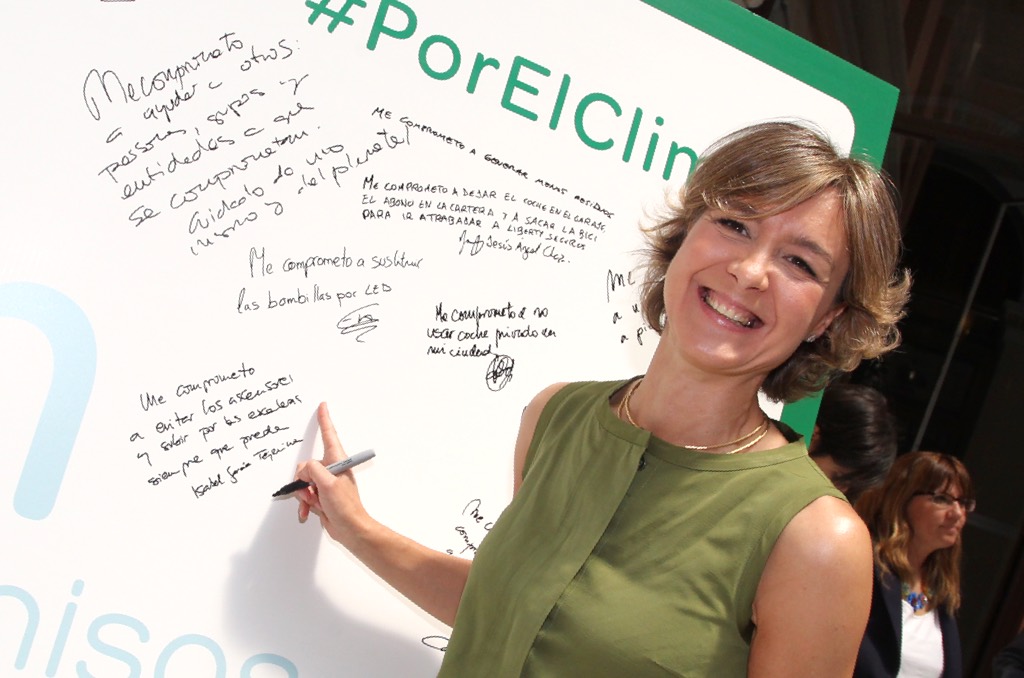 #PorElClim
Me comprometo
a ayudar a otros:
personas, grupos y
entidades a que
se comprometan.
Cuidado de uno
mismo y del planeta!
ME COMPROMETO A GENERAR MENOS RESIDUOS
ME COMPROMETO A DEJAR EL COCHE EN EL GARAJE,
EL ABONO EN LA CARTERA Y A SACAR LA BICI
PARA IR A TRABAJAR A LIBERTY SEGUROS
Jesús Angel
Me comprometo a sustituir
las bombillas por LED
Me comprometo a no
usar coche privado en
mi ciudad!
Me comprometo
a evitar los ascensores
y subir por las escaleras
siempre que pueda
Isabel García Tejerina
me
a
a
me c
comp
a
n
misos